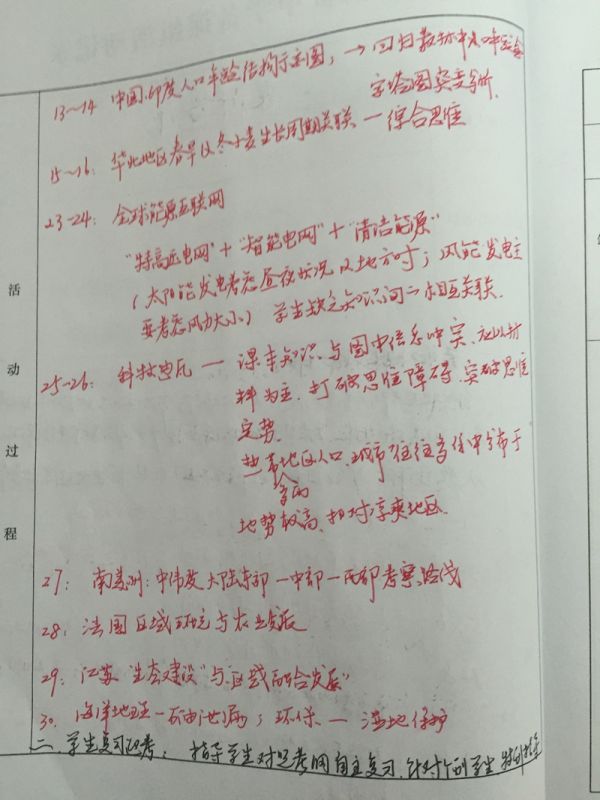 活动过程
13~14 中国、印度人口年龄结构示意图，→ 回归教材中人口年龄金
字塔图突变分析.
15~16: 华北地区春旱及冬小麦生长周期关联 — 综合思维
23-24: 全球能源互联网
"特高压电网"+"智能电网"+"清洁能源"
(太阳能发电考虑昼夜状况及地方时；风能发电主
要考虑风力大小) 学生缺乏知识间的相互关联.
25-26: 科技 — 课本知识与图中信息冲突. 应以材
料为主. 打破思维障碍. 突破思维
定势.
热带地区人口、城市往往高集中分布于
地势较高、相对凉爽地区.
27: 南美洲: 中纬度大陆东部—中部—西部考察路线
28: 法国区域环境与农业发展
29: 江苏"生态建设"与"区域融合发展"
30. 海洋地理—石油泄漏；环保 — 湿地保护
二、学生复习迎考: 指导学生对照考纲自主复习. 针对个别学生 特别指导